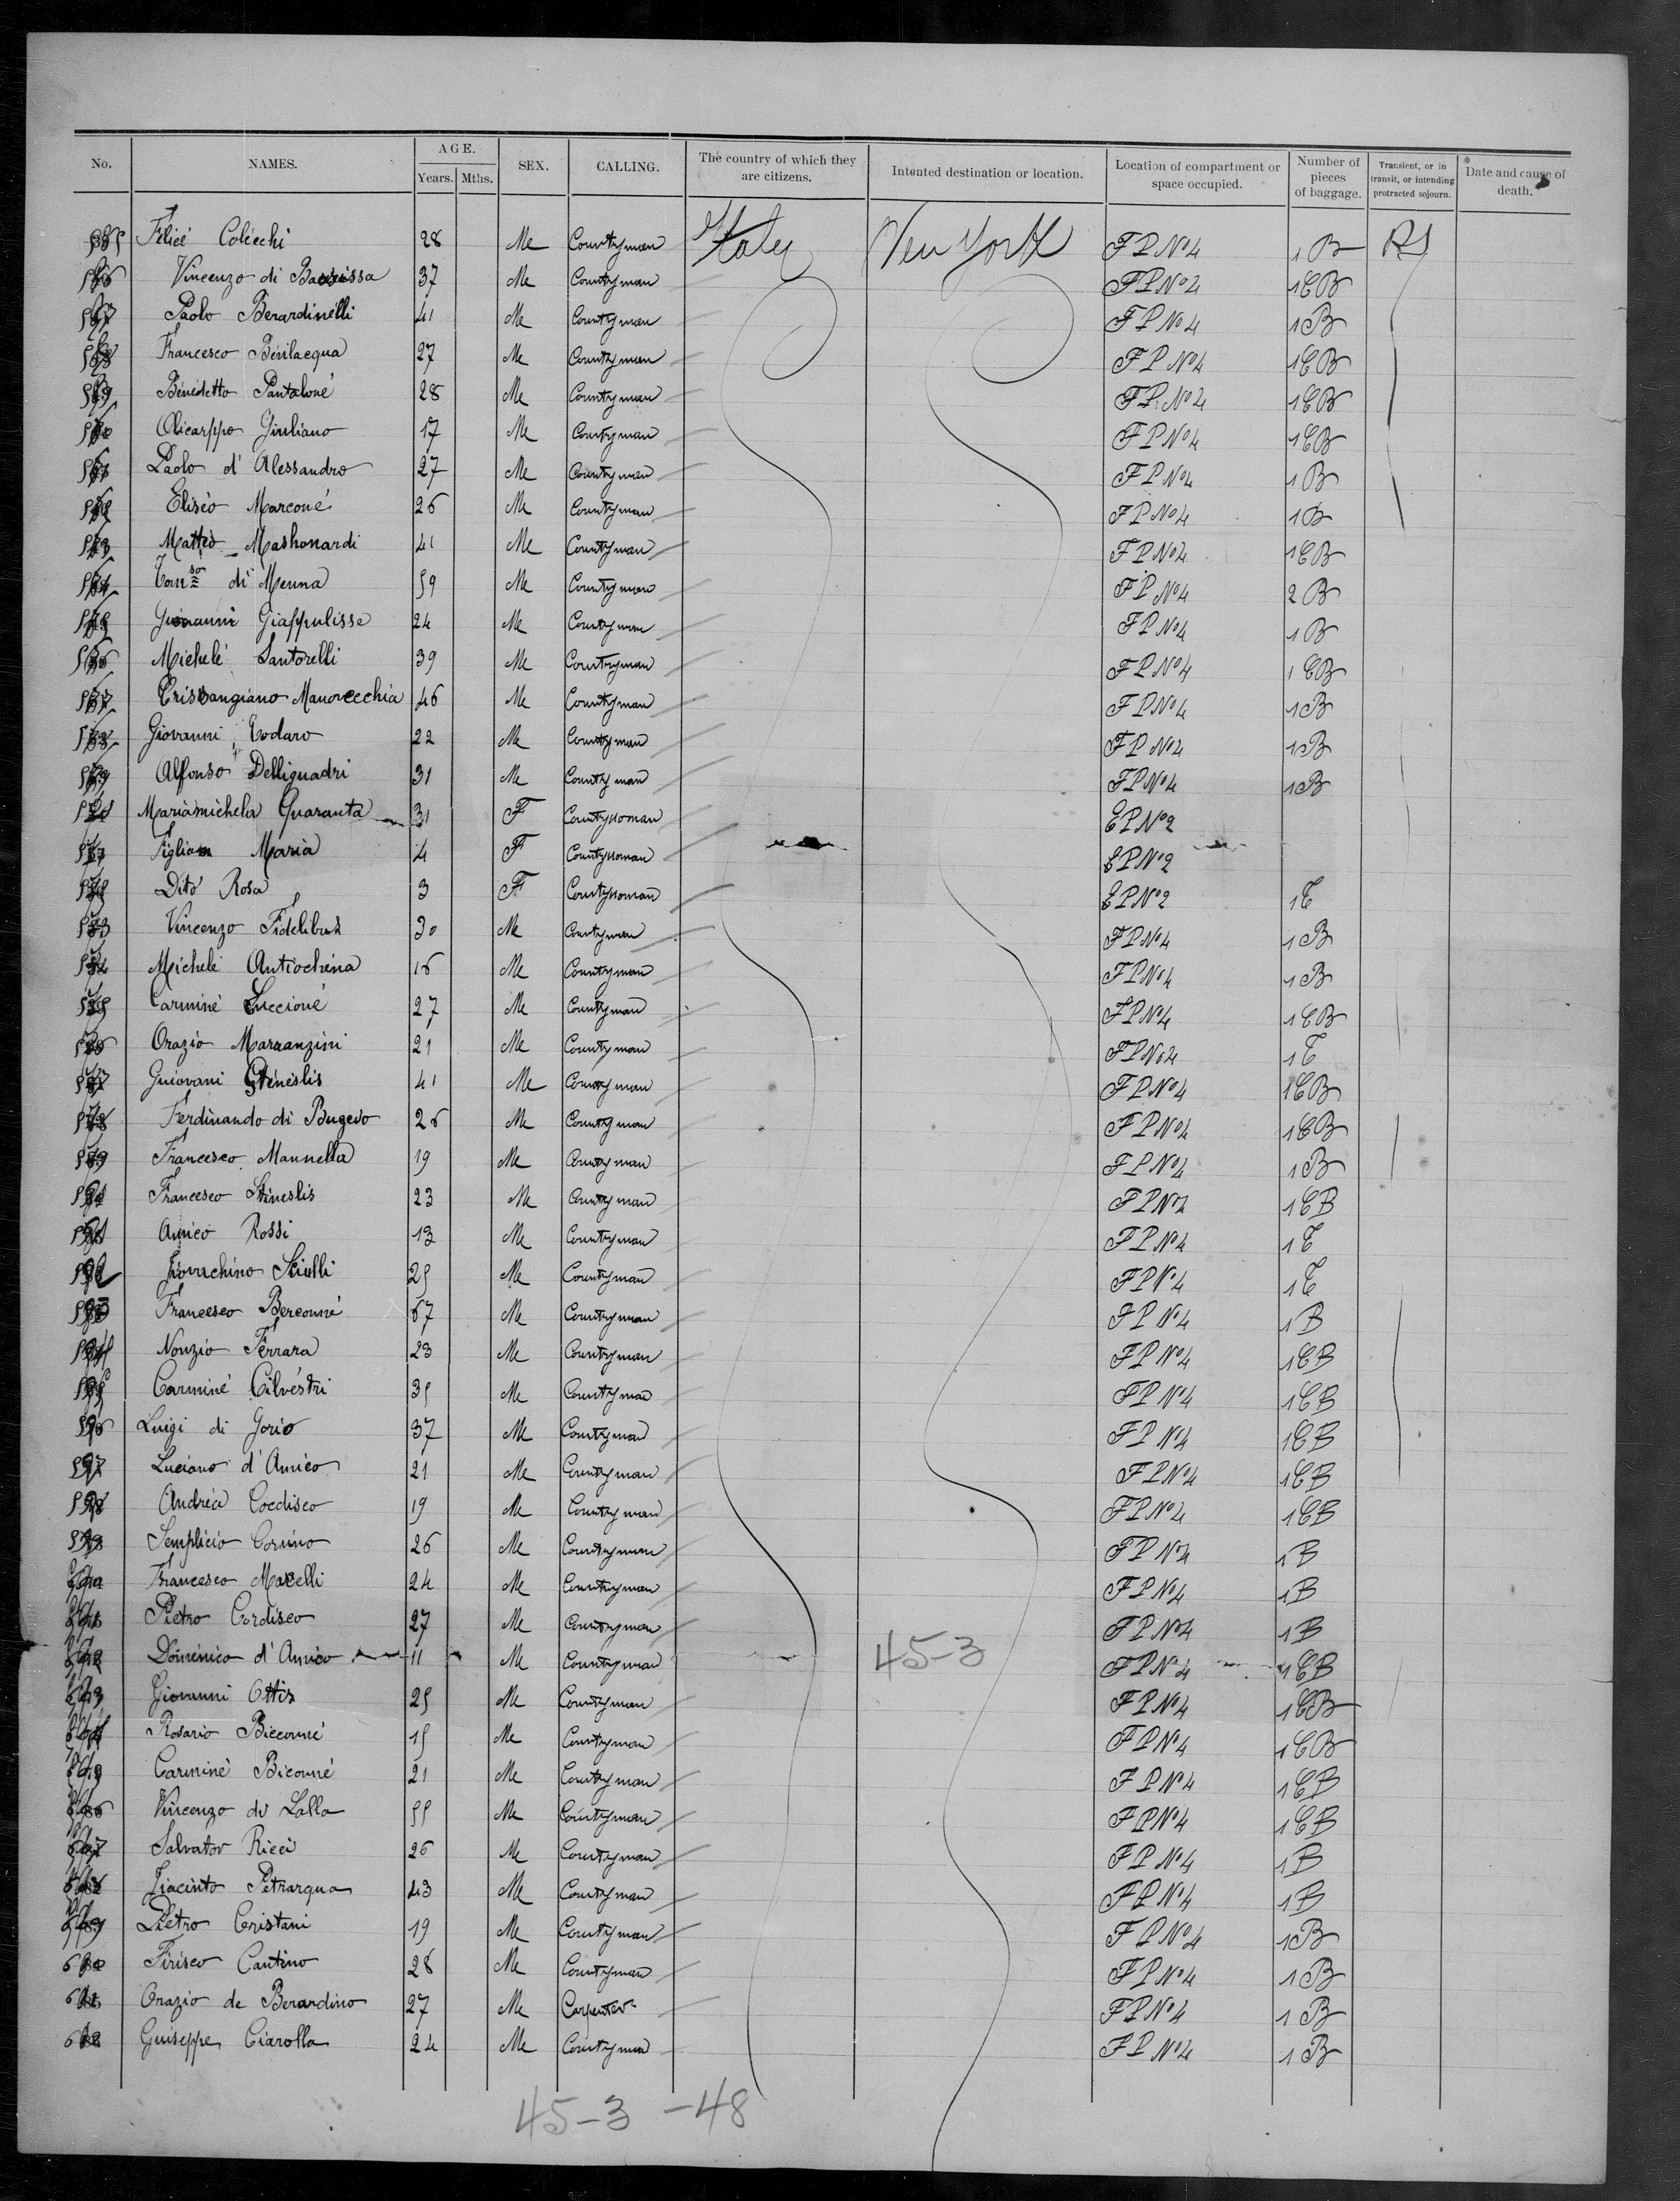 No. NAMES. AGE. Years. Mths. SEX. CALLING. The country of which they are citizens. Intented destination or location. Location of compartment or space occupied. Number of pieces of baggage. Transient, or in transit, or intending protracted sojourn. Date and cause of death.
Félicé Colecchi 28 Me Countryman Italy New York FP No 4 1 B
Vincenzo di 37 Me Countryman FP No 4 1 CB
Paolo Berardinelli 41 Me Countryman FP No 4 1 B
Francesco Bevilacqua 27 Me Countryman FP No 4 1 CB
Bénédetto Pantaloné 28 Me Countryman FP No 4 1 CB
Olicarppo Giuliano 17 Me Countryman FP No 4 1 CB
Paolo d'Alessandro 27 Me Countryman FP No 4 1 B
Eliséo Marconé 26 Me Countryman FP No 4 1 B
Mattéo Mashonardi 41 Me Countryman FP No 4 1 CB
di Menna 59 Me Countryman FP No 4 2 B
Giovanni Giappulisse 24 Me Countryman FP No 4 1 B
Michelé Santorelli 39 Me Countryman FP No 4 1 CB
Manovecchia 46 Me Countryman FP No 4 1 B
Giovanni Todaro 22 Me Countryman FP No 4 1 B
Alfonso Delliquadri 31 Me Countryman FP No 4 1 B
Mariamichela Quaranta 31 F Countrywoman EP No 2
Maria 4 F Countrywoman EP No 2
Dito Rosa 3 F Countrywoman EP No 2 1 C
Vincenzo Fidelibus 30 Me Countryman FP No 4 1 B
Michelé Antiochena 16 Me Countryman FP No 4 1 B
Carminé Luccioné 27 Me Countryman FP No 4 1 CB
Orazio Marranzini 21 Me Countryman FP No 4 1 C
Guiovani 41 Me Countryman FP No 4 1 CB
Ferdinando di Bugevo 26 Me Countryman FP No 4 1 CB
Francesco Mannella 19 Me Countryman FP No 4 1 B
Francesco 23 Me Countryman FP No 4 1 CB
Amico Rossi 13 Me Countryman FP No 4 1 C
25 Me Countryman FP No 4 1 C
Francesco Berconné 67 Me Countryman FP No 4 1 B
Nonzio Ferrara 23 Me Countryman FP No 4 1 CB
Carminé Cilvéstri 35 Me Countryman FP No 4 1 CB
Luigi di Gorio 37 Me Countryman FP No 4 1 CB
Luciano d'Amico 21 Me Countryman FP No 4 1 CB
Andréa Cocdisco 19 Me Countryman FP No 4 1 CB
Semplicio Cornino 26 Me Countryman FP No 4 1 B
Francesco Marcelli 24 Me Countryman FP No 4 1 B
Pietro Cordisco 27 Me Countryman FP No 4 1 B
Doménico d'Amico 11 Me Countryman 45-3 FP No 4 1 CB
Giovanni 25 Me Countryman FP No 4 1 CB
Rosario Bicconné 15 Me Countryman FP No 4 1 CB
Carminé Biconné 21 Me Countryman FP No 4 1 CB
Vincenzo di Lallo 55 Me Countryman FP No 4 1 CB
Salvator Ricci 26 Me Countryman FP No 4 1 B
Giacinto Petrarqua 43 Me Countryman FP No 4 1 B
Pietro Cristani 19 Me Countryman FP No 4 1 B
Cantino 28 Me Countryman FP No 4 1 B
Orazio de Berardino 27 Me Carpenter FP No 4 1 B
Guiseppe Ciarolla 24 Me Countryman FP No 4 1 B
45-3 -48